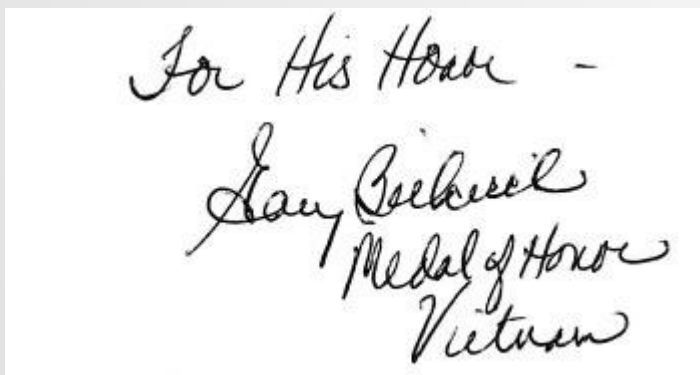 For His Honor -
Gary Beikirch
Medal of Honor
Vietnam